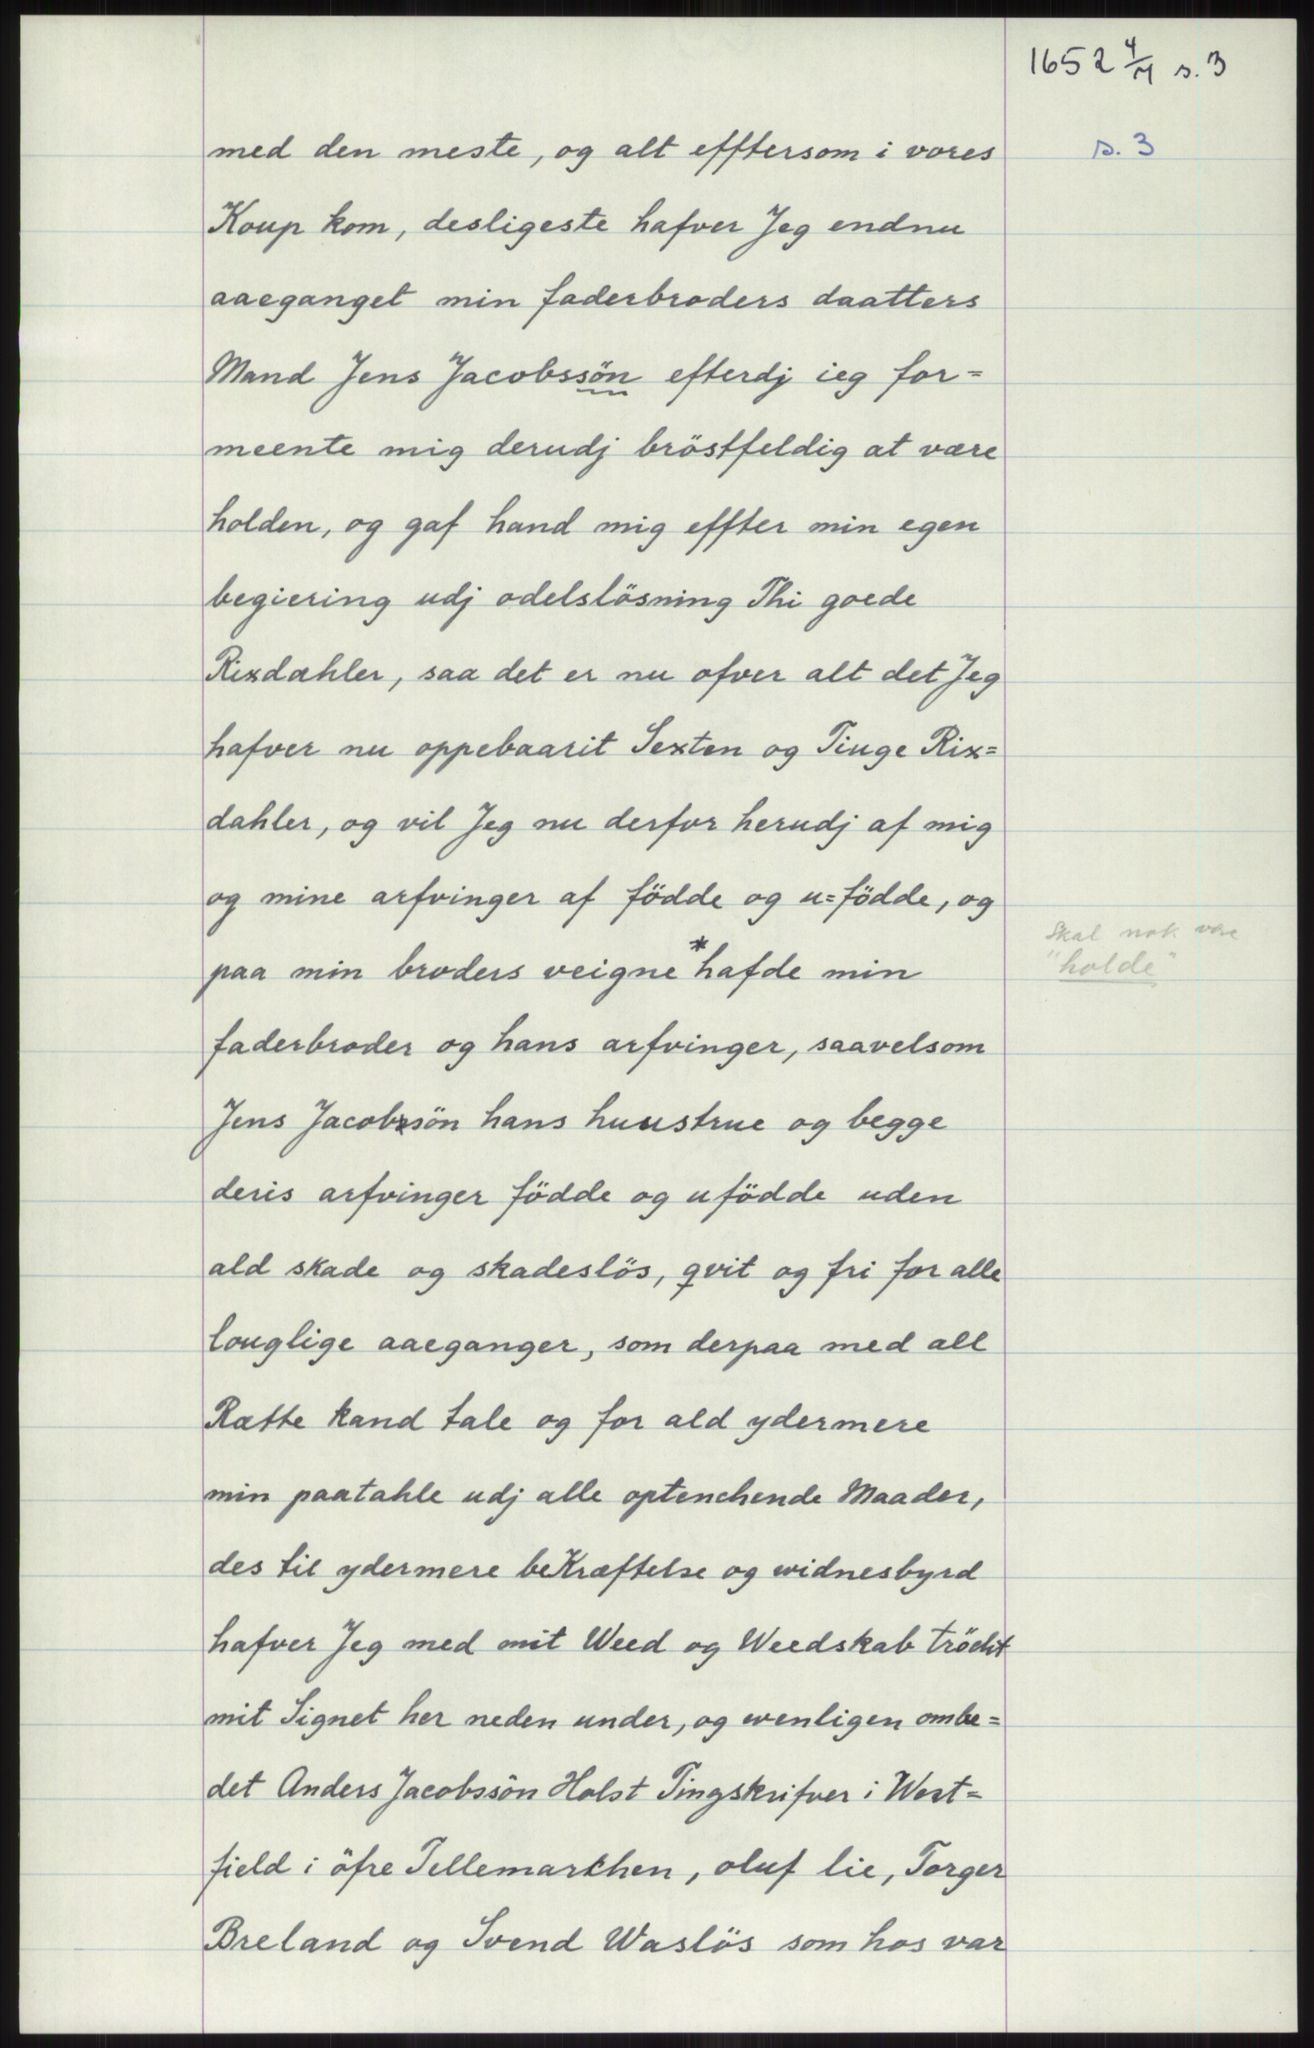 1652 4/7 s. 3
s. 3
med den meste, og alt efftersom i vores
Koup kom, desligeste hafver Jeg endnu
aaeganget min faderbroders daatters
Mand Jens Jacobssön efterdj ieg for=
meente mig derudj bröstfeldig at være
holden, og gaf hand mig effter min egen
begiering udj odelslösning Thi goede
Rixdahler, saa det er nu ofver alt det Jeg
hafver nu oppebaarit Sexten og Tiuge Rix=
dahler, og vil Jeg nu derfor herudj af mig
og mine arfvinger af födde og u=födde, og
paa min broders veigne *hafde min
Skal nok være
"holde"
faderbroder og hans arfvinger, saavelsom
Jens Jacobsön hans huustrue og begge
deris arfvinger födde og ufödde uden
ald skade og skadeslös, qvit og fri for alle
louglige aaeganger, som derpaa med all
Rætte kand tale og for ald ydermere
min paatahle udj alle optenchende Maader,
des til ydermere beKræftelse og widnesbyrd
hafver Jeg med mit Weed og Weedskab tröcht
mit Signet her neden under, og wenligen ombe=
det Anders Jacobssön Holst Tingskrifver i West=
field i öfre Tellemarkhen, oluf lie, Torger
Breland og Svend Waslös som hos var